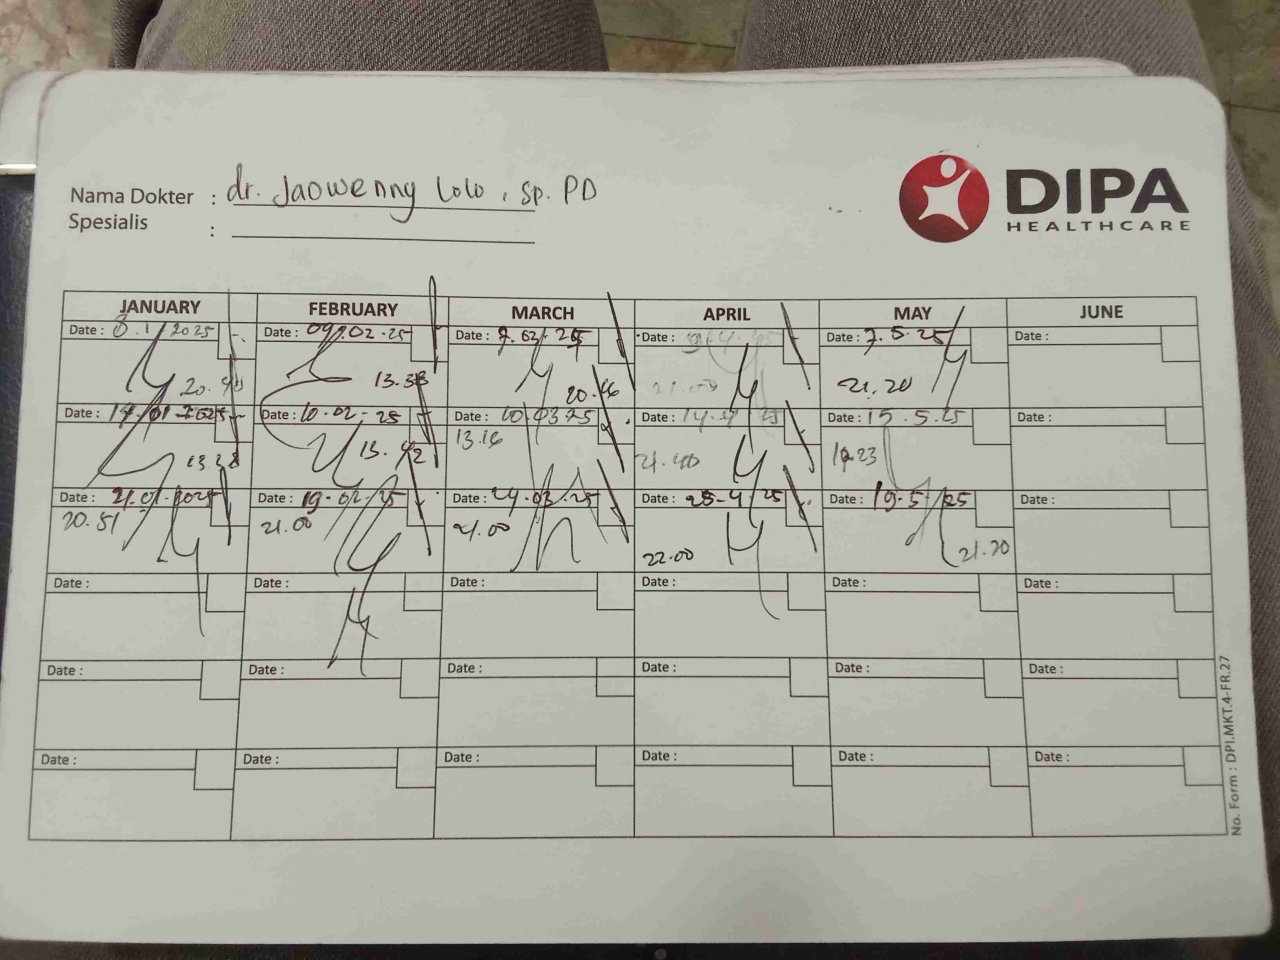 Nama Dokter : dr. Jaowenny Lolo, Sp. PD
Spesialis :
DIPA
HEALTHCARE
JANUARY FEBRUARY MARCH APRIL MAY JUNE
Date : 8.1.2025 Date : 09.02.25 Date : 7.03.25 Date : Date : 7.5.25 Date :
20.40 13.38 20.46 21.20
Date : 14.01.2025 Date : 10.02.25 Date : 10.03.25 Date : 14.4.25 Date : 15.5.25 Date :
13.38 13.42 13.16 21.40 19.23
Date : 21.01.2025 Date : 19.02.25 Date : 24.03.25 Date : 28-4-25 Date : 19-5-25 Date :
20.51 21.00 21.00 22.00 21.20
Date : Date : Date : Date : Date : Date :
Date : Date : Date : Date : Date : Date :
Date : Date : Date : Date : Date : Date :
No. Form : DPI.MKT.4-FR.27